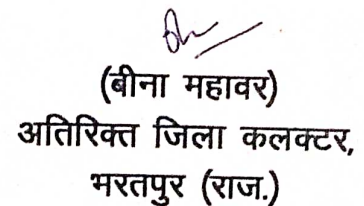 (बीना महावर)
अतिरिक्त जिला कलक्टर,
भरतपुर (राज.)